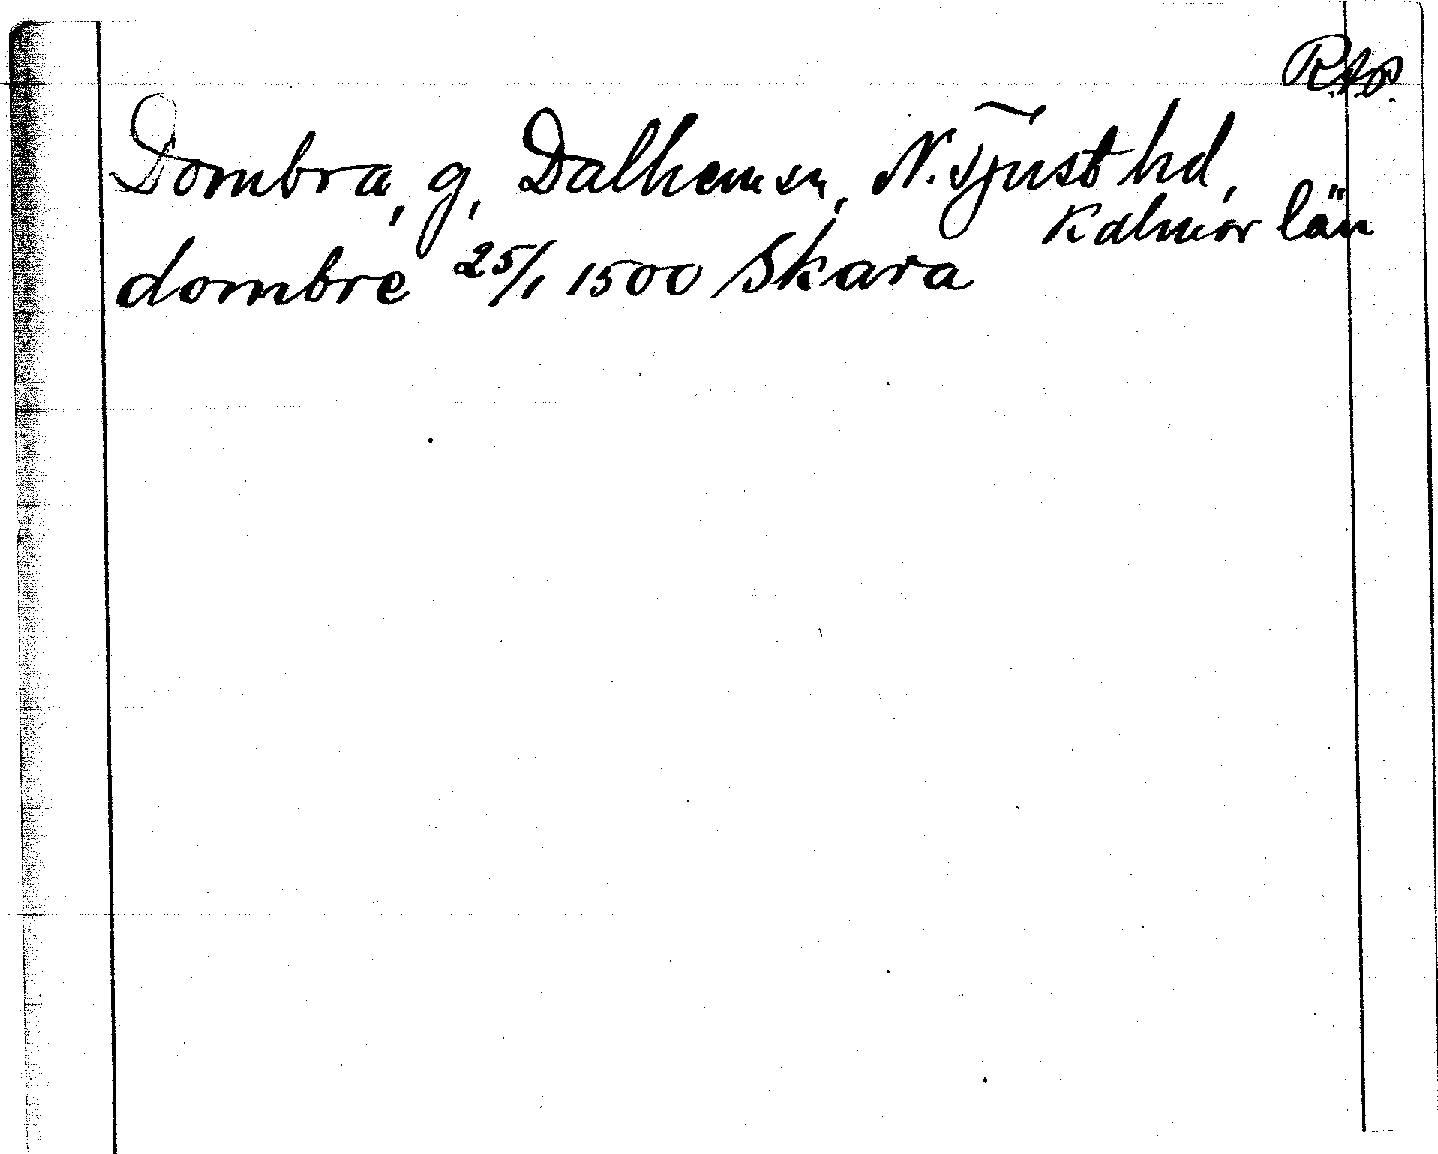 R.A.P.
Dombra, g, Dalhem sn, N. Tjust hd,
Kalmar län
dombre 25/1 1500 Skara